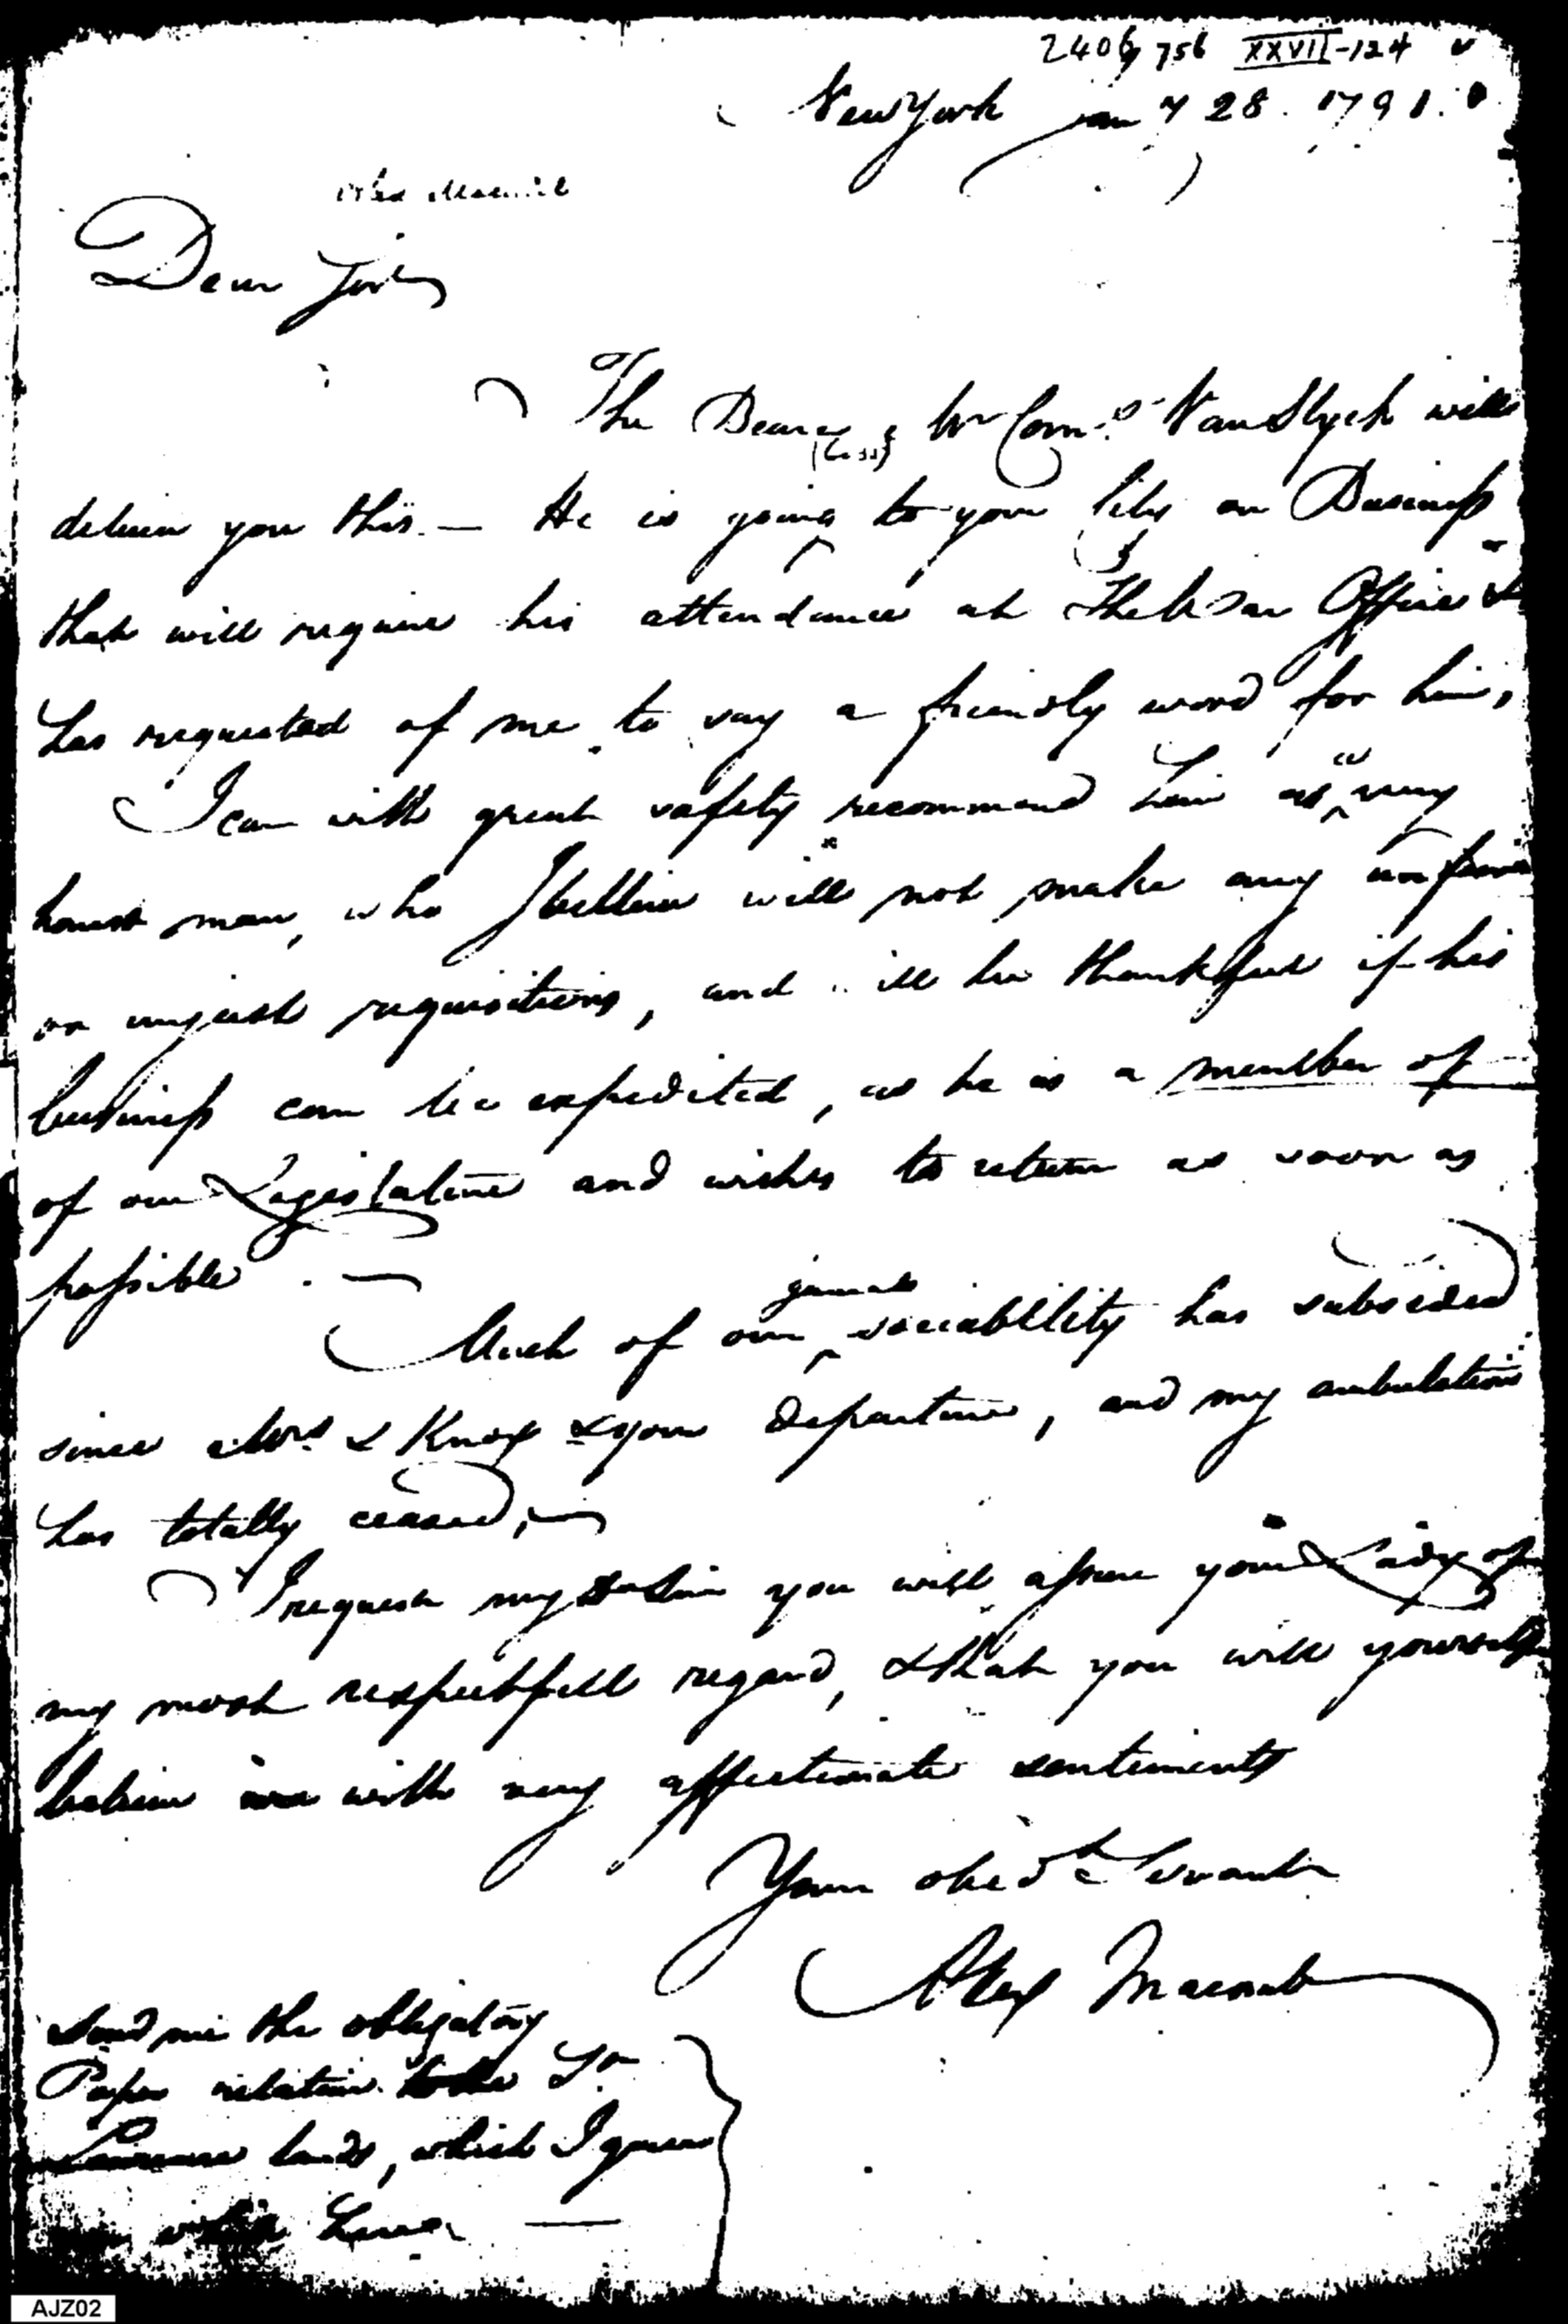 2406 756 XXVII-124
New York Jany 28. 1791.
Dear Sir
The Bearer Mr Corns. Van Slyck will
deliver you this — He is going to your City on Business
that will require his attendance at The War Office &
has requested of me to say a friendly word for him,
I can with great safety recommend him as a very
honest man, who I believe will not make any unfair
or unjust requisitions, and will be thankful if his
business can be expedited, as he is a member of
of our Legislature and wishes to return as soon as
possible. —
Much of our sociability has subsided
since Mrs. & Knox & your departure, and my ambulation
has totally ceased, —
I request my you will assure your Lady of
my most respectfull regard, & that you will yourself
believe me with very affectionate sentiments
Your obedt Servant
Alex Macomb
Send me the obligatory
Paper relative to the St.
Lawrence lands, which I gave
when here —
AJZ02